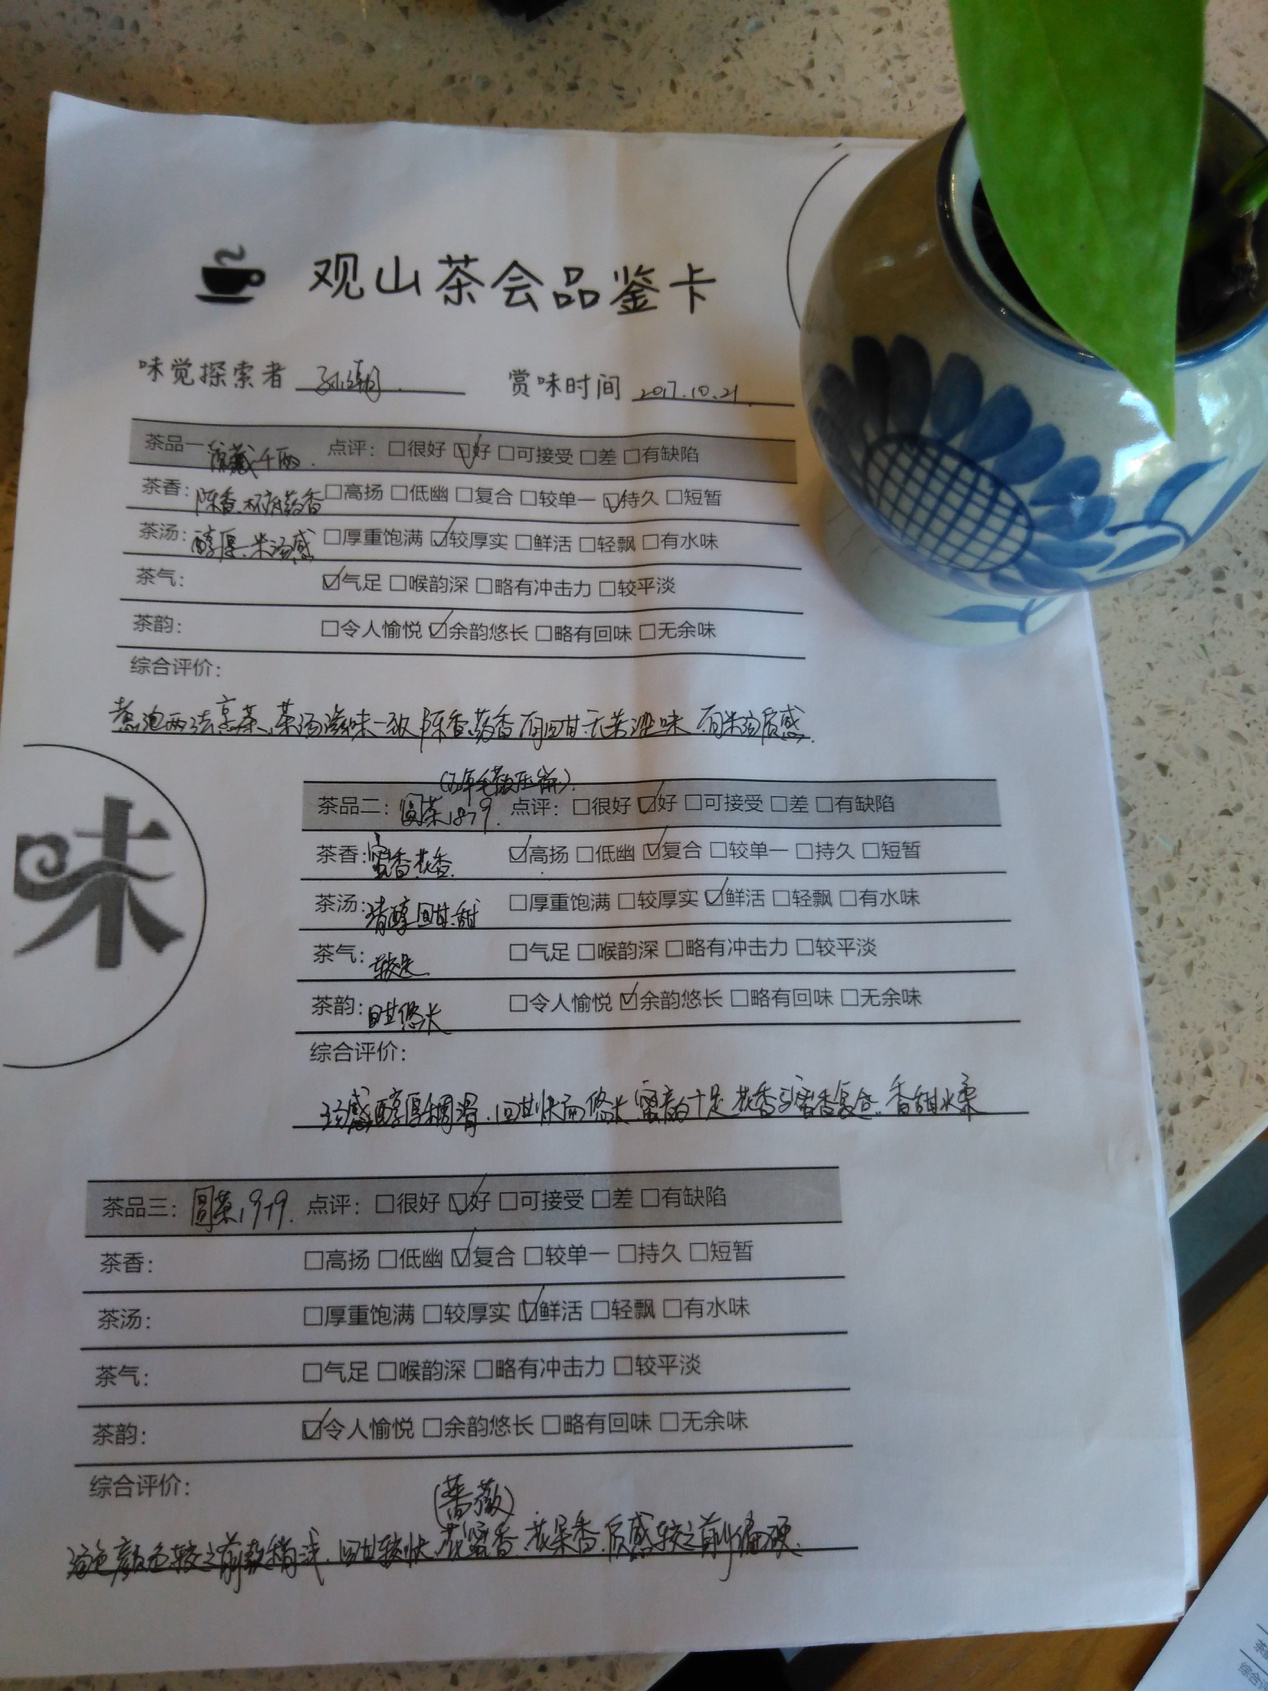 观山茶会品鉴卡
味觉探索者 孙潮 赏味时间 2017.10.21.
茶品一 藏千两. 点评: □很好 ☑好 □可接受 □差 □有缺陷
茶香: 陈香.杯底药香 □高扬 □低幽 □复合 □较单一 ☑持久 □短暂
茶汤: 醇厚.米汤感 □厚重饱满 ☑较厚实 □鲜活 □轻飘 □有水味
茶气: ☑气足 □喉韵深 □略有冲击力 □较平淡
茶韵: □令人愉悦 ☑余韵悠长 □略有回味 □无余味
综合评价:
煮泡两法烹茶.茶汤滋味一致 陈香.药香 有回甘.无苦涩味 有米汤质感.
茶品二: 圆茶1879. 点评: □很好 ☑好 □可接受 □差 □有缺陷
茶香: 蜜香.花香. ☑高扬 □低幽 ☑复合 □较单一 □持久 □短暂
茶汤: 清醇 回甘.甜 □厚重饱满 □较厚实 ☑鲜活 □轻飘 □有水味
茶气: 较足. □气足 □喉韵深 □略有冲击力 □较平淡
茶韵: 回甘悠长 □令人愉悦 ☑余韵悠长 □略有回味 □无余味
综合评价:
汤感醇厚稠滑.回甘快而悠长 蜜韵十足 花香与蜜香复合.香甜水柔
味
茶品三: 圆茶1979. 点评: □很好 ☑好 □可接受 □差 □有缺陷
茶香: □高扬 □低幽 ☑复合 □较单一 □持久 □短暂
茶汤: □厚重饱满 □较厚实 ☑鲜活 □轻飘 □有水味
茶气: □气足 □喉韵深 □略有冲击力 □较平淡
茶韵: ☑令人愉悦 □余韵悠长 □略有回味 □无余味
综合评价:
(蔷薇)
汤色颜色较之前款稍浅.回甘较快.花蜜香.花果香.质感较之前偏硬.